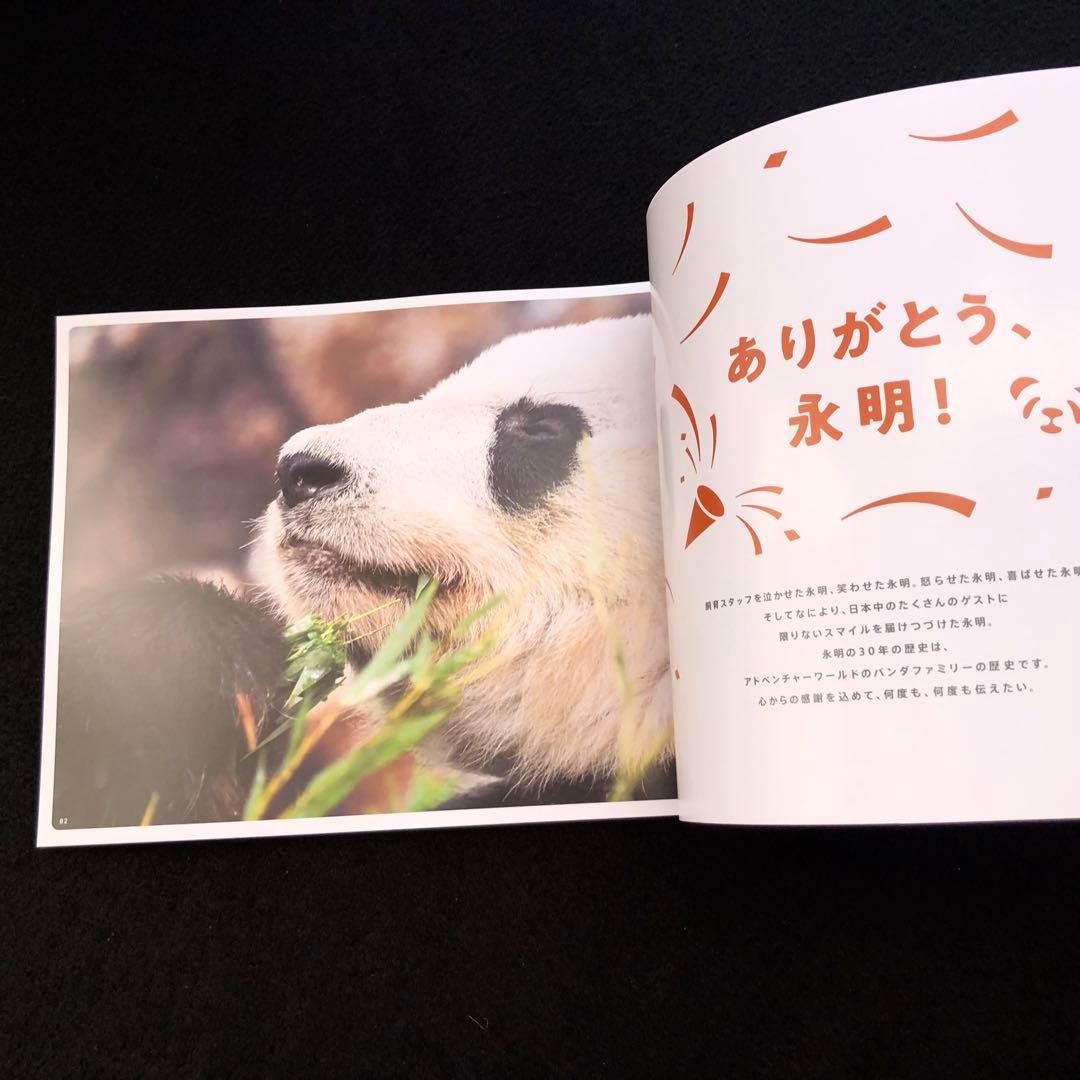 82
ありがとう、
永明！
飼育スタッフを泣かせた永明、笑わせた永明。怒らせた永明、喜ばせた永明
そしてなにより、日本中のたくさんのゲストに
限りないスマイルを届けつづけた永明。
永明の30年の歴史は、
アドベンチャーワールドのパンダファミリーの歴史です。
心からの感謝を込めて、何度も、何度も伝えたい。